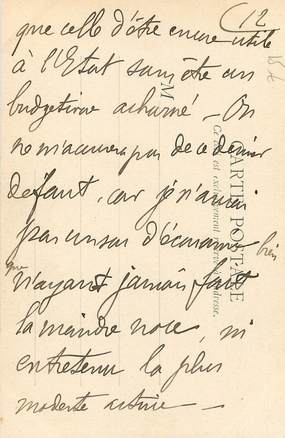 (12
que celle d'être encore utile
à l'Etat sans être un
budgétivore acharné – On
ne m'accusera pas de ce dernier
défaut, car je n'aurai
pas un sou d'économie bien
que n'ayant jamais fait
la moindre noce, ni
entretenu la plus
modeste actrice –
CARTE POSTALE
Ce côté est exclusivement réservé à l'adresse.
M